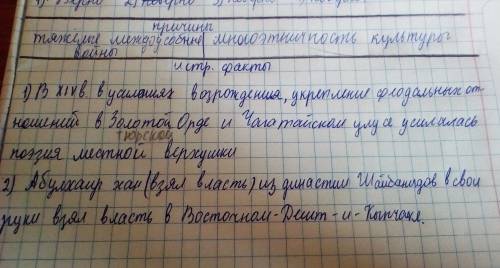 причины
тяжелые междоусобные многоэтничность культуры
войны
истр. факты
1) В XIV в. в условиях возрождения, укрепление феодальных от-
ношений в Золотой Орде и Чагатайском улусе усилилась
тюрской
поэзия местной верхушки
2) Абулхаир хан (взял власть) из династии Шайбанидов в свои
руки взял власть в Восточном-Дешт-и-Кыпчаке.